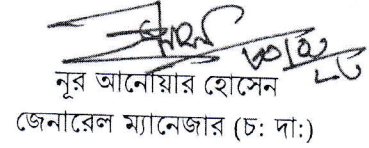 নূর আনোয়ার হোসেন
জেনারেল ম্যানেজার (চ: দা:)